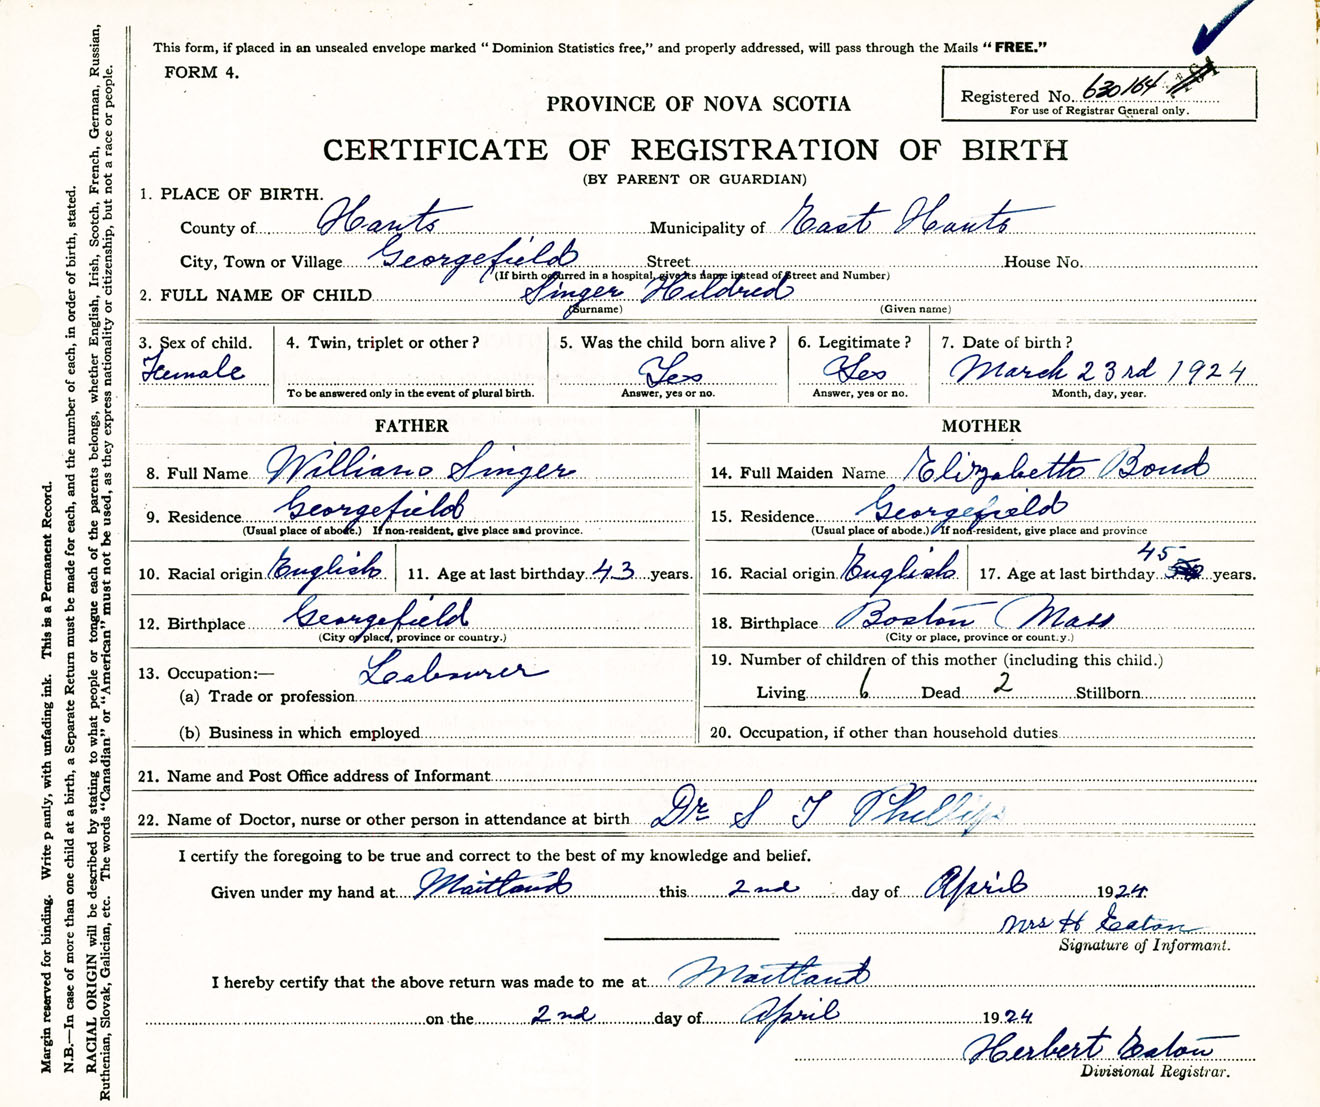 This form, if placed in an unsealed envelope marked “ Dominion Statistics free,” and properly addressed, will pass through the Mails “ FREE.”
FORM 4.
Registered No. 630164
For use of Registrar General only.
PROVINCE OF NOVA SCOTIA
CERTIFICATE OF REGISTRATION OF BIRTH
(BY PARENT OR GUARDIAN)
1. PLACE OF BIRTH.
County of Hants Municipality of East Hants
City, Town or Village Georgefield Street House No.
(If birth occurred in a hospital, give its name instead of Street and Number)
2. FULL NAME OF CHILD Singer Hildred
(Surname) (Given name)
3. Sex of child. 4. Twin, triplet or other ? 5. Was the child born alive ? 6. Legitimate ? 7. Date of birth ?
Female Yes Yes March 23rd 1924
To be answered only in the event of plural birth. Answer, yes or no. Answer, yes or no. Month, day, year.
FATHER
8. Full Name William Singer
9. Residence Georgefield
(Usual place of abode.) If non-resident, give place and province.
10. Racial origin English 11. Age at last birthday 43 years.
12. Birthplace Georgefield
(City or place, province or country.)
13. Occupation:— Labourer
(a) Trade or profession
(b) Business in which employed
MOTHER
14. Full Maiden Name Elizabeth Bond
15. Residence Georgefield
(Usual place of abode.) If non-resident, give place and province
16. Racial origin English 17. Age at last birthday 45 years.
18. Birthplace Boston Mass
(City or place, province or country.)
19. Number of children of this mother (including this child.)
Living 6 Dead 2 Stillborn
20. Occupation, if other than household duties
21. Name and Post Office address of Informant
22. Name of Doctor, nurse or other person in attendance at birth Dr S T Phillips
I certify the foregoing to be true and correct to the best of my knowledge and belief.
Given under my hand at Maitland this 2nd day of April 1924
Mrs H Eaton
Signature of Informant.
I hereby certify that the above return was made to me at Maitland
on the 2nd day of April 1924
Herbert Eaton
Divisional Registrar.
Margin reserved for binding. Write p ainly, with unfading ink. This is a Permanent Record.
N.B.—In case of more than one child at a birth, a Separate Return must be made for each, and the number of each, in order of birth, stated.
RACIAL ORIGIN will be described by stating to what people or tongue each of the parents belongs, whether English, Irish, Scotch, French, German, Russian,
Ruthenian, Slovak, Galician, etc. The words “Canadian” or “American” must not be used, as they express nationality or citizenship, but not a race or people.